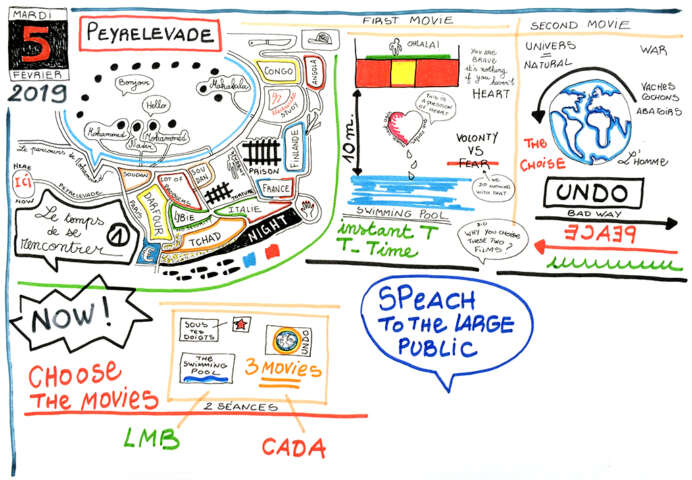 MARDI
5
FÉVRIER
2019
PEYRELEVADE
Bonjour
Hello
Makakala
Mohammed
Nasir
Mohammed
CONGO
ANGOLA
STUDY
PRISON
FINLANDE
FRANCE
TORTURE
ITALIE
SOUDAN
SOUDAN
LOT OF PROBLEMS
DARFOUR
PARIS
LIBIE
TCHAD
NIGHT
Le parcours de
PEYRELEVADE
HERE
ICI
NOW
Le temps
de se
rencontrer
1
FIRST MOVIE
OHLALA!
YOU ARE
BRAVE
it's nothing
if you haven't
HEART
THIS IS
A QUESTION
OF HEART
10 m.
VOLONTY
VS
FEAR
WE
DO NOTHING
WITH THAT
SWIMMING POOL
instant T
T-Time
SECOND MOVIE
UNIVERS
=
NATURAL
WAR
VACHES
COCHONS
ABATOIRS
THE
CHOISE
L'HOMME
UNDO
BAD WAY
PEACE
DID
WHY YOU CHOOSE
THESE TWO
FILMS?
NOW!
CHOOSE
THE MOVIES
SOUS
TES
DOIGTS
UNDO
THE
SWIMMING
POOL
3 MOVIES
2 SÉANCES
LMB
CADA
SPEACH
TO THE LARGE
PUBLIC